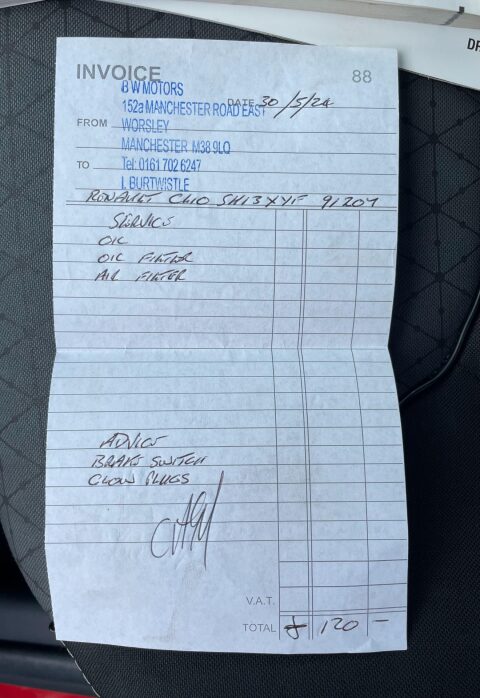 DR
INVOICE 88
B W MOTORS
DATE 30/5/24
152a MANCHESTER ROAD EAST
FROM WORSLEY
MANCHESTER M38 9LQ
TO Tel: 0161 702 6247
I. BURTWISTLE
RENAULT CLIO SH13XYF 91207
SERVICE
OIL
OIL FILTER
AIR FILTER
ADVICE
BRAKE SWITCH
GLOW PLUGS
V.A.T.
TOTAL £ 120 -